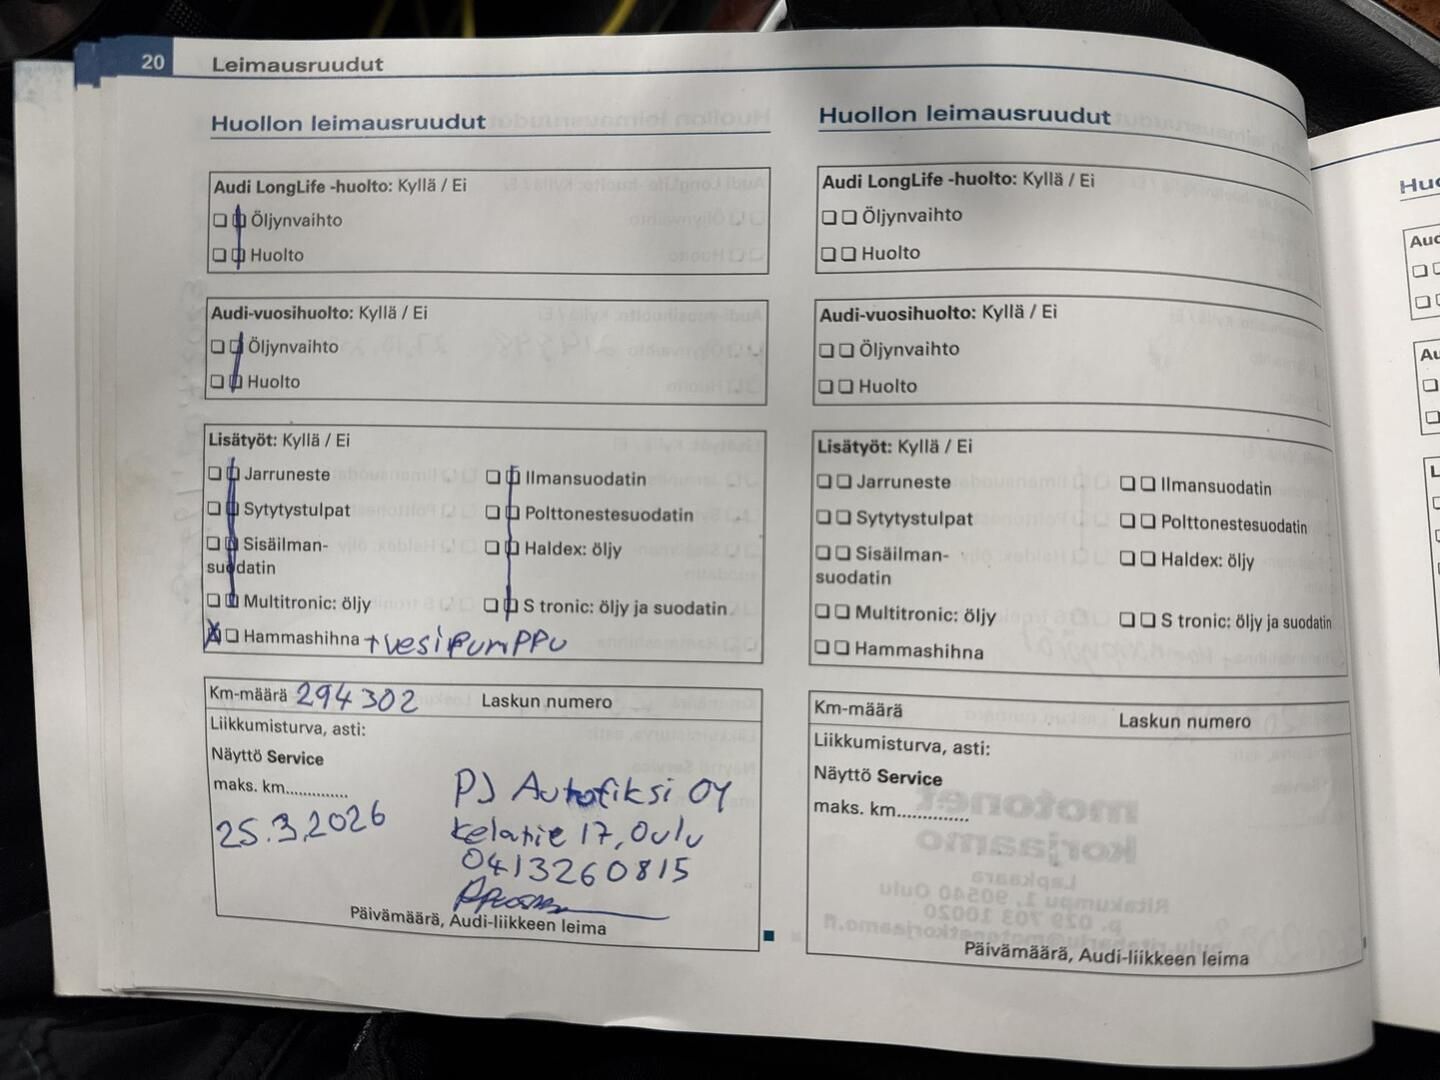 20 Leimausruudut
Huollon leimausruudut
Audi LongLife -huolto: Kyllä / Ei
Öljynvaihto
Huolto
Audi-vuosihuolto: Kyllä / Ei
Öljynvaihto
Huolto
Lisätyöt: Kyllä / Ei
Jarruneste
Ilmansuodatin
Sytytystulpat
Polttonestesuodatin
Sisäilman-
suodatin
Haldex: öljy
Multitronic: öljy
S tronic: öljy ja suodatin
X Hammashihna + vesipumppu
Km-määrä 294302
Laskun numero
Liikkumisturva, asti:
Näyttö Service
maks. km..............
25.3.2026
PJ Autofiksi OY
Kelatie 17, Oulu
0413260815
Päivämäärä, Audi-liikkeen leima
Huollon leimausruudut
Audi LongLife -huolto: Kyllä / Ei
Öljynvaihto
Huolto
Audi-vuosihuolto: Kyllä / Ei
Öljynvaihto
Huolto
Lisätyöt: Kyllä / Ei
Jarruneste
Ilmansuodatin
Sytytystulpat
Polttonestesuodatin
Sisäilman-
suodatin
Haldex: öljy
Multitronic: öljy
S tronic: öljy ja suodatin
Hammashihna
Km-määrä
Laskun numero
Liikkumisturva, asti:
Näyttö Service
maks. km..............
Päivämäärä, Audi-liikkeen leima